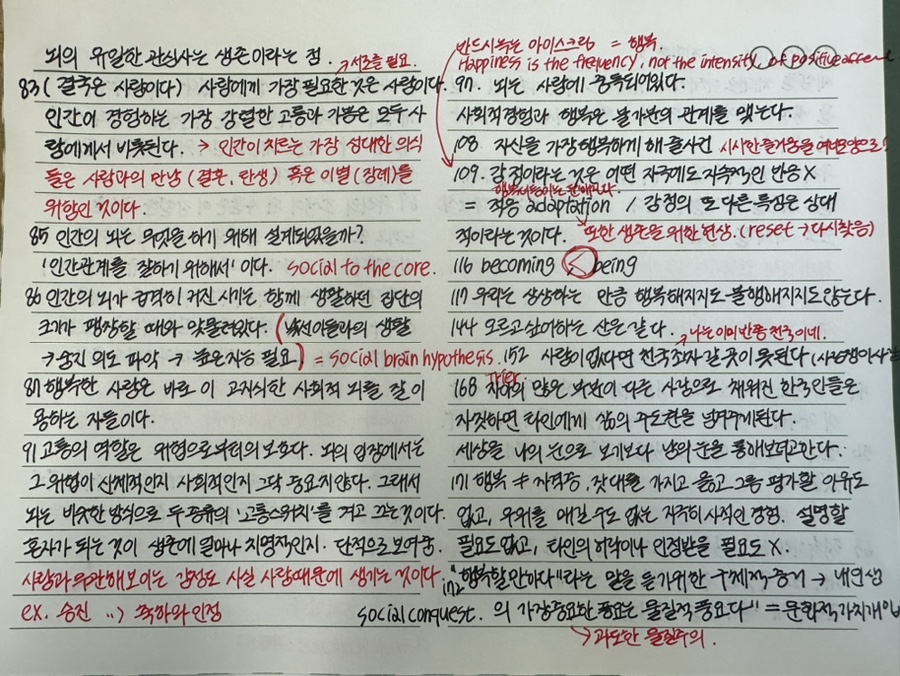 뇌의 유일한 관심사는 생존이라는 점. → 서로를 필요.
83 (결국은 사람이다) 사람에게 가장 필요한 것은 사람이다.
인간이 경험하는 가장 강렬한 고통과 기쁨은 모두 사
람에게서 비롯된다. → 인간이 치르는 가장 성대한 의식
들은 사람과의 만남 (결혼, 탄생) 혹은 이별 (장례)를
위함인 것이다.
85 인간의 뇌는 무엇을 하기 위해 설계되었을까?
'인간관계를 잘하기 위해서' 이다. social to the core.
86 인간의 뇌가 급격히 커진 시기는 함께 생활하던 집단의
크기가 팽창할 때와 맞물려있다. (낯선이들과의 생활
→ 숨진 의도 파악 → 높은 지능 필요) = social brain hypothesis.
87 행복한 사람은 바로 이 고지식한 사회적 뇌를 잘 이
용하는 자들이다.
91 고통의 역할은 위험으로부터의 보호다. 뇌의 입장에서는
그 위험이 신체적인지 사회적인지 그닥 중요치 않다. 그래서
뇌는 비슷한 방식으로 두 종류의 '고통스위치'를 켜고 끄는 것이다.
혼자가 되는 것이 생존에 얼마나 치명적인지 단적으로 보여줌.
사람과 무관해 보이는 감정도 사실 사람때문에 생기는 것이다
ex. 승진 → 축하와 인정
social conquest.
반드시 녹는 아이스크림 = 행복.
Happiness is the frequency, not the intensity, of positive affect
97. 뇌는 사람에 중독되어있다.
사회적경험과 행복은 불가분의 관계를 맺는다.
108 자신을 가장 행복하게 해 줄 사건 시시한 즐거움을 여러모양으로!
109. 감정이라는 것은 어떤 자극에도 지속적인 반응 X
= 적응 adaptation / 감정의 또 다른 특징은 상대
적이라는 것이다. 또한 생존을 위한 현상. (reset → 다시 찾음)
116 becoming < being
117 우리는 상상하는 만큼 행복해지지도 불행해지지도 않는다.
144 오르고 싶어하는 산은 같다. → 나는 이미 반쯤 천국이네.
152 사람이 없다면 천국조차 갈 곳이 못된다
168 자아의 많은 부분이 다른 사람으로 채워진 한국인들은
자칫하면 타인에게 삶의 주도권을 넘겨주게된다.
세상을 나의 눈으로 보기보다 남의 눈을 통해보려고한다.
171 행복 ≠ 자격증, 잣대를 가지고 옳고 그름 평가할 이유도
없고, 우위를 매길 수도 없는 지극히 사적인 경험. 설명할
필요도 없고, 타인의 허락이나 인정받을 필요도 X.
172 "행복할만하다"라는 말을 듣기위한 구체적 증거 → 내 인생
의 가장 중요한 풍요는 물질적 풍요다" = 문화적 가치개입
→ 과도한 물질주의.